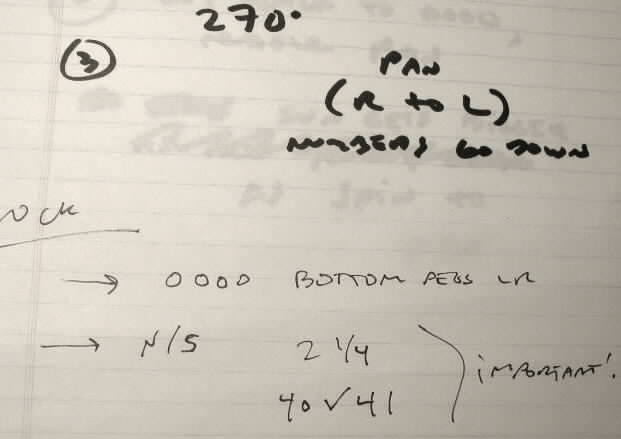 270°
③
PAN
(R to L)
NUMBERS GO DOWN
OCK
→ 0000 BOTTOM PEGS
→ N/S 2 1/4
40 √ 41
IMPORTANT!